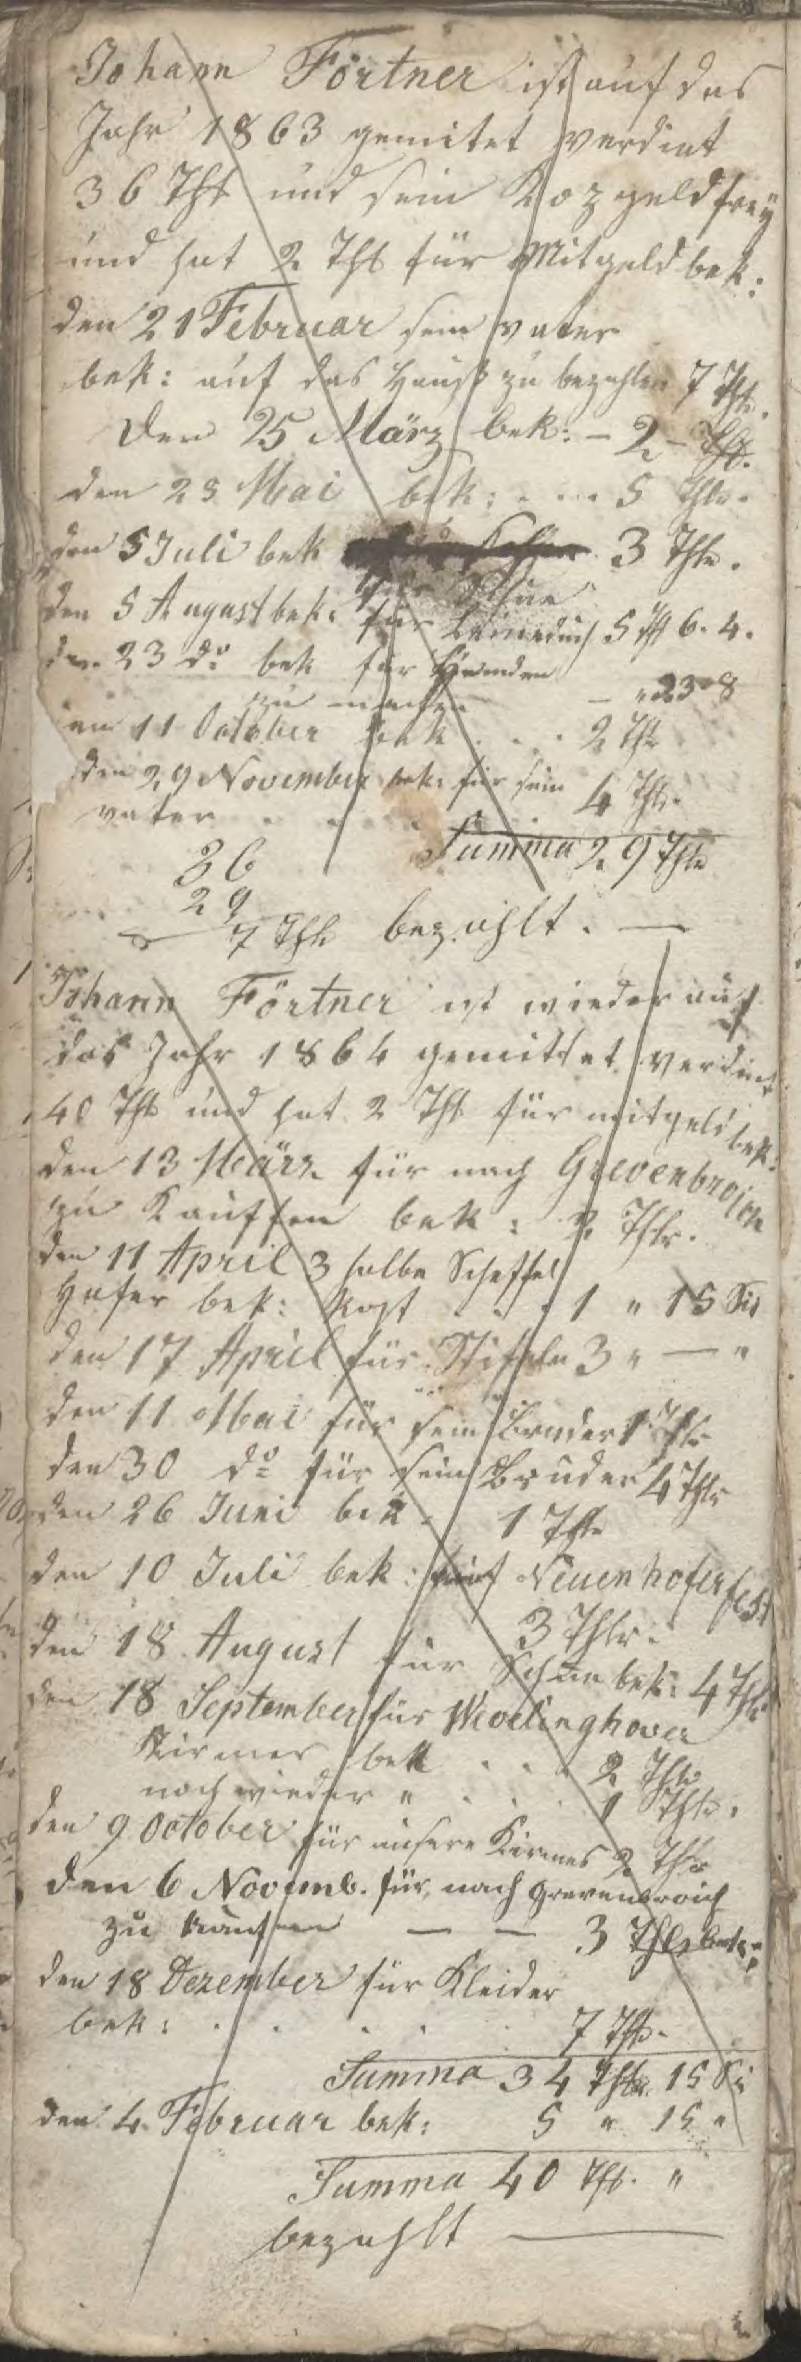 Johann Förtner ist auf das
Jahr 1863 gemitet verdint
36 Thl und sein Kozgeld frey
und hat 2 Thl für Mitgeld bek:
den 21 Februar sein vater
bek: auf das Hauß zu bezahlen 7 Thlr.
Den 25 März bek: – 2 – Thlr.
den 25 Mai bek: . . . . 5 Thlr.
den 5 Juli bek 3 Thlr.
für Schue
den 5 August bek: für Leineduch 5 Thl 6. 4.
den 23 do bek für Hemden
zu machen – " 23 8
den 11 October bek . . . 2 Thlr
den 29 November bek: für sein
vater . . . . 4 Thlr.
Summa 29 Thlr
36
29
7 Thlr bezahlt. —
Johann Förtner ist wieder auf
das Jahr 1864 gemittet verdint
40 Thl und hat 2 Thl für mitgeld bek:
den 13 März für nach Grevenbrojch
zu Kauffen bek: 2 Thlr.
den 11 April 3 halbe Scheffel
Hafer bek: kost . . . 1 " 15 Sil
den 17 April für Stifeln 3 " — "
den 11 Mai für sein Bruder 1 Thlr
den 30 do für sein Bruder 4 Thlr
den 26 Juni bek. 1 Thlr
den 10 Juli bek: auf Neuenhofer fest
3 Thlr.
den 18 August für Schue bek: 4 Thlr
den 18 September für Wevelinghover
Kirmes bek . . . 2 Thlr
noch wieder " . . . 1 Thlr.
den 9 October für unsere Kirmes 2 Thlr
den 6 Novemb. für nach Grevenbroich
zu kaufen — — 3 Thlr bek:
den 18 Dezember für Kleider
bek: . . . . . 7 Thlr.
Summa 34 Thlr. 15 Sil
den 4 Februar bek: 5 " 15 "
Summa 40 Thl. "
bezahlt —